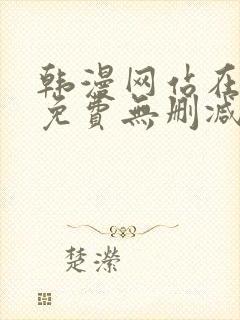 韩漫网站在
免費無删减
楚濴